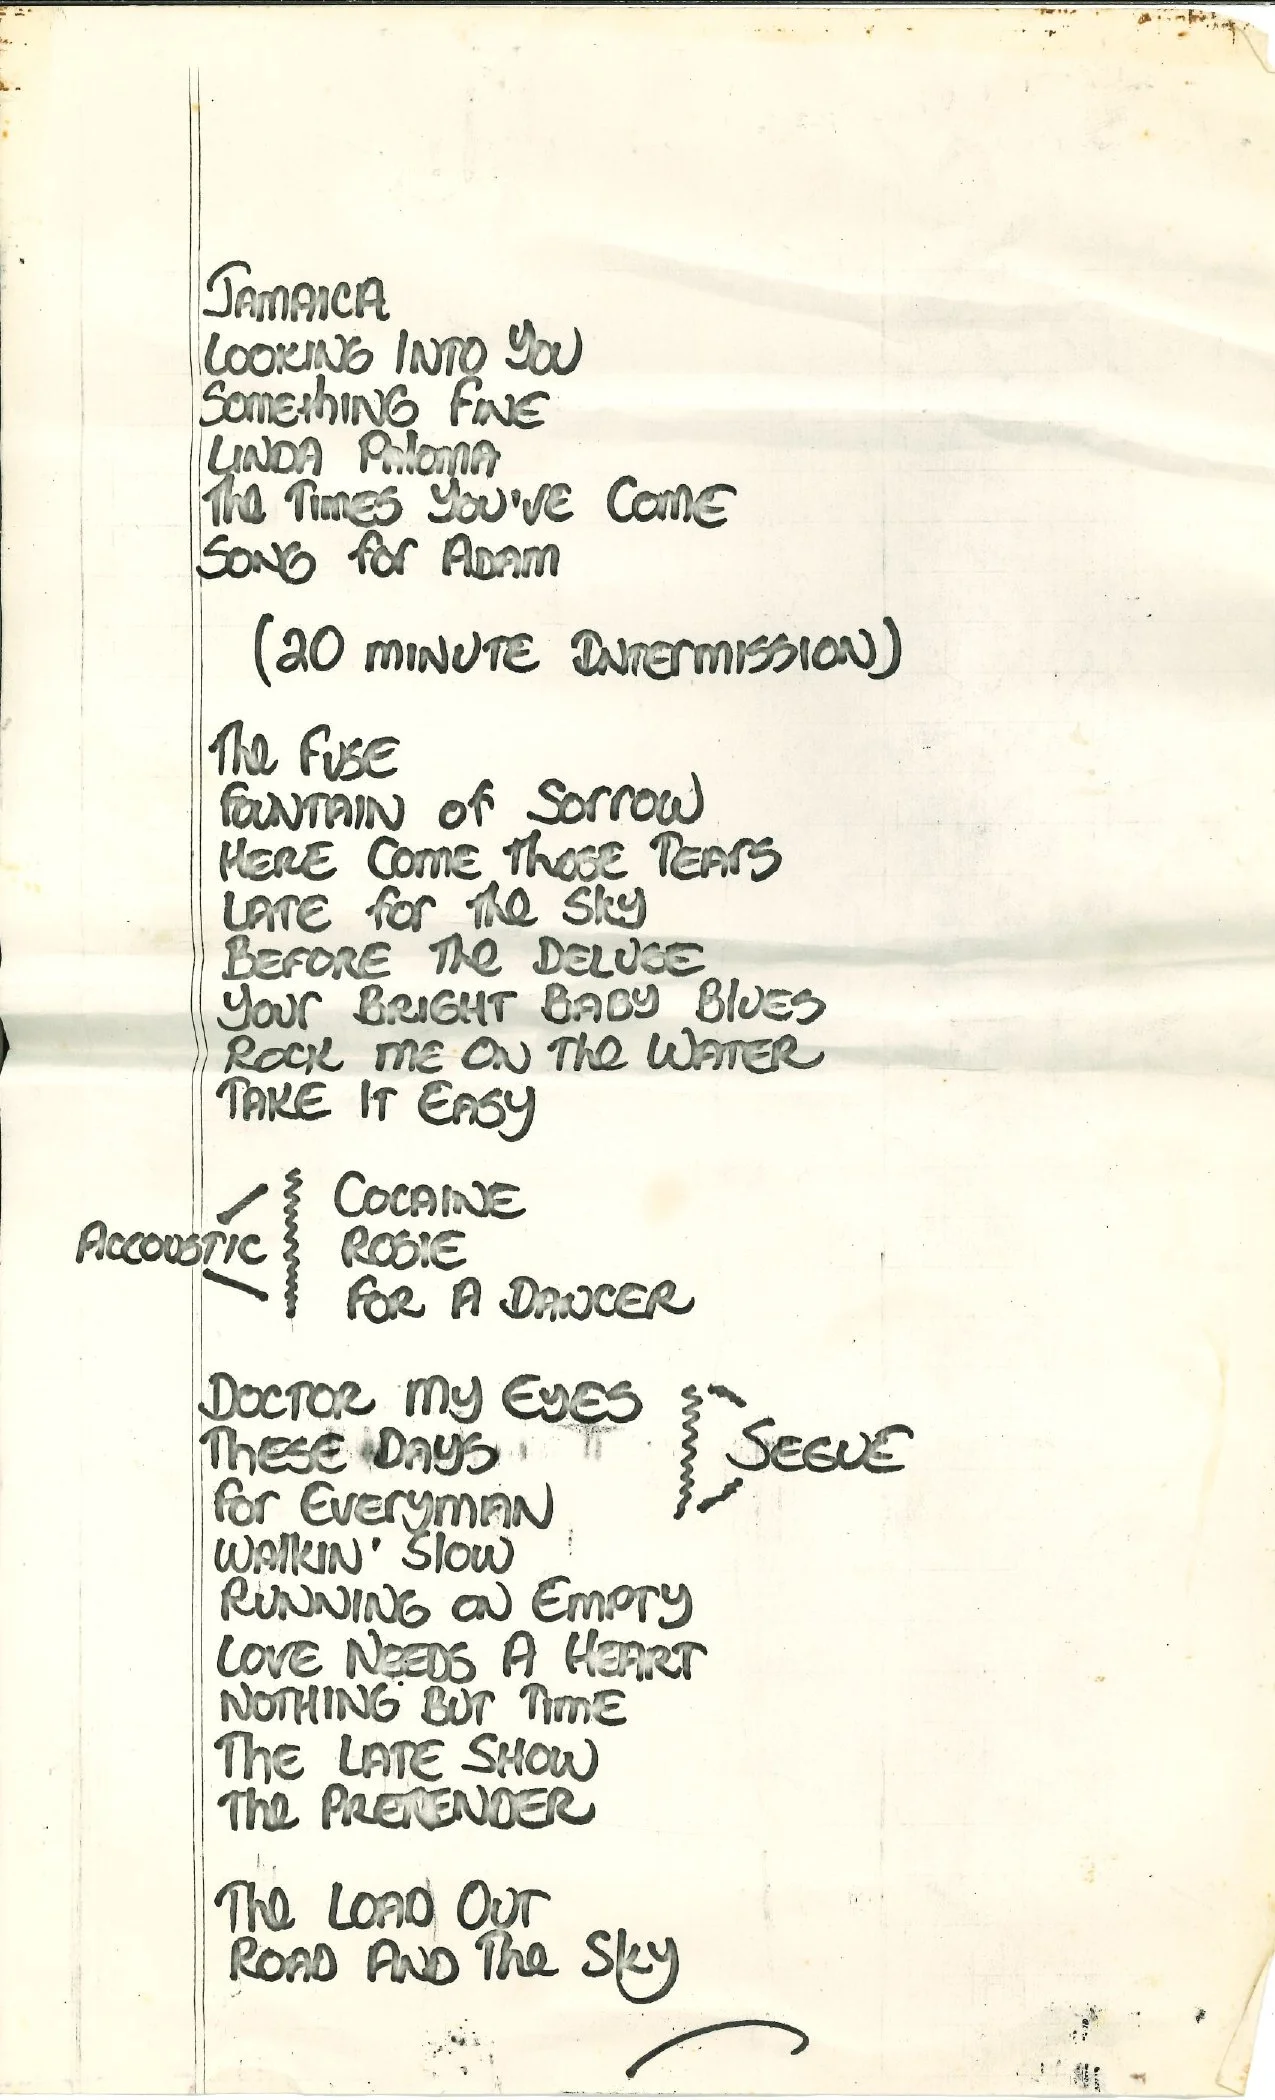 JAMAICA
LOOKING INTO YOU
SOMEthING FINE
LINDA PAlOMA
The TIMES YOU'VE COME
SONG for ADAM
(20 MINUTE INTErMISSION)
The FUSE
FOUNTAIN of SOrrOW
HERE COME ThOSE TEArS
LATE for The Sky
BEFORE The DELUGE
your BRIGHT BABY BlUES
ROCK ME ON The WATER
TAKE IT EASy
ACCOUSTIC
COCAINE
ROSIE
FOR A DANCER
DOCTOR My EyES
ThESE DAyS
for EVEryMAN
SEGUE
WAlKIN' SlOW
RUNNING ON EMPTY
LOVE NEEDS A HEART
NOTHING BUT TIME
ThE LATE SHOW
The PRETENDER
The LOAD OUT
ROAD AND The Sky